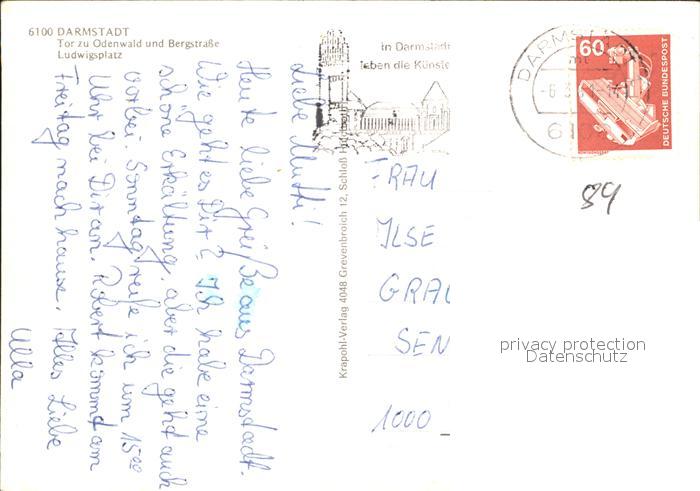 6100 DARMSTADT
Tor zu Odenwald und Bergstraße
Ludwigsplatz
Liebe Mutti!
Heute liebe Grüße aus Darmstadt.
Wie geht es Dir? Ich habe eine
schöne Erkältung, aber die geht auch
vorbei. Sonntag rufe ich um 15⁰⁰
Uhr bei Dir an. Robert kommt am
Freitag nach hause. Alles Liebe
Ulla
Krapohl-Verlag 4048 Grevenbroich 12, Schloß
in Darmstadt
leben die Künste
DARMST
60
DEUTSCHE BUNDESPOST
FRAU
ILSE
GRAU
SEN
1000
89
privacy protection
Datenschutz